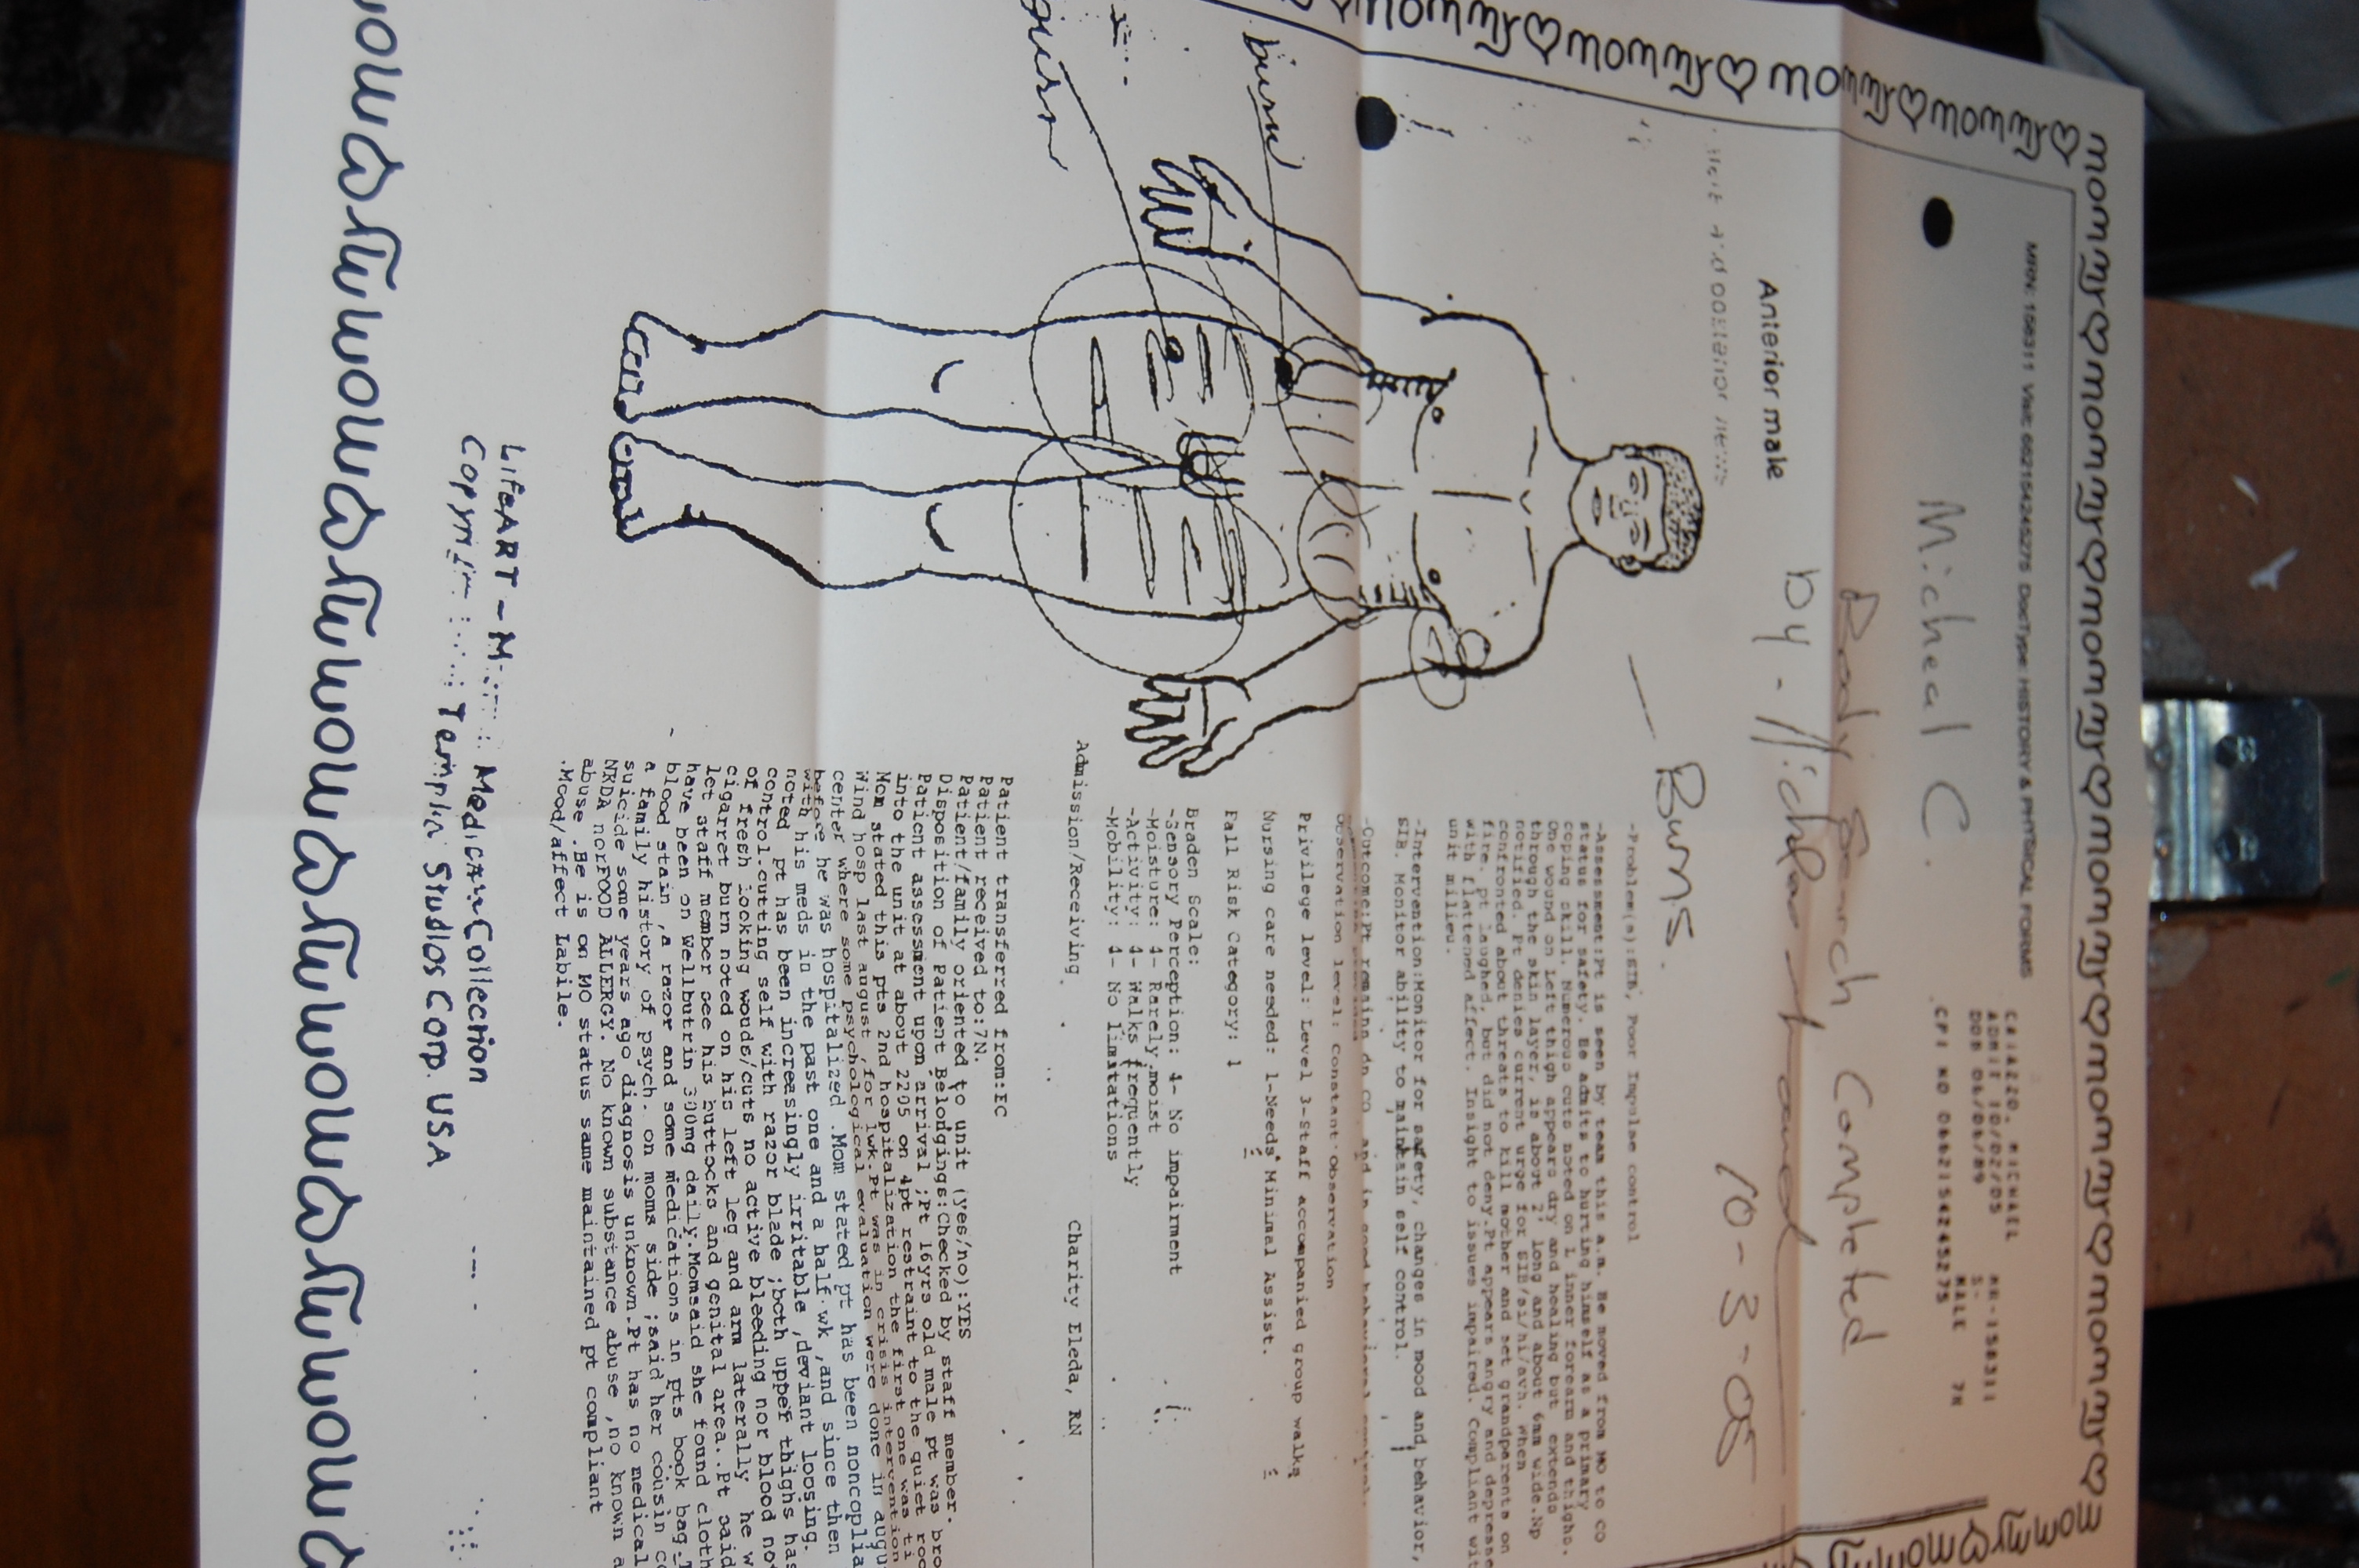 mommy♡mommy♡mommy♡mommy♡mommy♡mommy♡mommy♡mommy♡mommy
MRN: 158311 Visit: 66215424S275 DocType: HISTORY & PHYSICAL FORMS
Micheal C.
MR-158311
ADMIT 10/02/05 S-
DOB 06/06/89 MALE 7N
CPI NO
Body Search Completed
by - 10-3-05
Anterior male
Burns.
burn
burn
-Problem(s):SIB, Poor Impulse control
-Assessment:Pt is seen by team this a.m. He moved from MO to CO
status for safety. He admits to hurting himself as a primary
coping skill. Numerous cuts noted on L inner forearm and thighs.
One wound on Left thigh appears dry and healing but extends
through the skin layer, is about 2" long and about 6mm wide.Np
notified. Pt denies current urge for SIB/si/hi/avh. When
confronted about threats to kill mother and set grandparents on
fire, pt laughed, but did not deny.Pt appears angry and
with flattened affect. Insight to issues impaired. Compliant
unit milieu.
-Intervention:Monitor for safety, changes in mood and behavior,
SIB. Monitor ability to maintain self control.
-Outcome:Pt remains on CO and in good behavioral control.
Observation level: Constant Observation
Privilege level: Level 3-Staff accompanied group walks
Nursing care needed: 1-Needs Minimal Assist.
Fall Risk Category: 1
Braden Scale:
-Sensory Perception: 4- No impairment
-Moisture: 4- Rarely moist
-Activity: 4- Walks frequently
-Mobility: 4- No limitations
Admission/Receiving Charity Eleda, RN
Patient transferred from:EC
Patient received to:7N.
Patient/family oriented to unit (yes/no):YES
Disposition of Patient Belongings:Checked by staff member.
Patient assessment upon arrival ;Pt 16yrs old male pt was
into the unit at about 2205 on 4pt restraint to the quiet
Mom stated this pts 2nd hospitalization the first one was
Wind hosp last august ,for 1wk.Pt was in crisis intervention
center where some psychological evaluation were done in
before he was hospitalized .Mom stated pt has been
with his meds in the past one and a half wk ,and since then
noted pt has been increasingly irritable ,deviant loosing.
control.cutting self with razor blade ;both upper thighs
of fresh looking wouds/cuts no active bleeding nor blood
cigarret burn noted on his left leg and arm laterally he
let staff member see his buttocks and genital area..Pt said
have been on Wellbutrin 300mg daily.Momsaid she found
blood stain ,a razor and some medications in pts book bag.
a family history of psych. on moms side ;said her cousin
suicide some years ago diagnosis unknown.Pt has no medical
NRDA norFOOD ALLERGY. No known substance abuse ,no known
abuse .Be is on MO status same maintained pt compliant
.Mood/affect Labile.
LifeART - Medicar Collection
Templin Studios Corp. USA
mommy♡mommy♡mommy♡mommy♡mommy♡mommy♡mommy